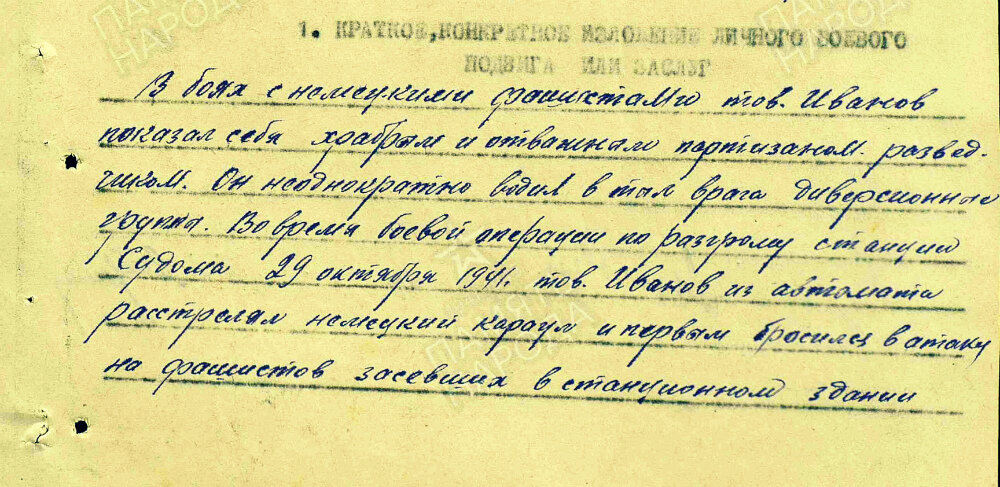 1. КРАТКОЕ, КОНКРЕТНОЕ ИЗЛОЖЕНИЕ ЛИЧНОГО БОЕВОГО
ПОДВИГА ИЛИ ЗАСЛУГ
В боях с немецкими фашистами тов. Иванов
показал себя храбрым и отважным партизаном развед-
чиком. Он неоднократно водил в тыл врага диверсионные
группы. Во время боевой операции по разгрому станции
Судома 29 октября 1941г. тов. Иванов из автомата
расстрелял немецкий караул и первым бросился в атаку
на фашистов засевших в станционном здании
ПАМЯТЬ
НАРОДА